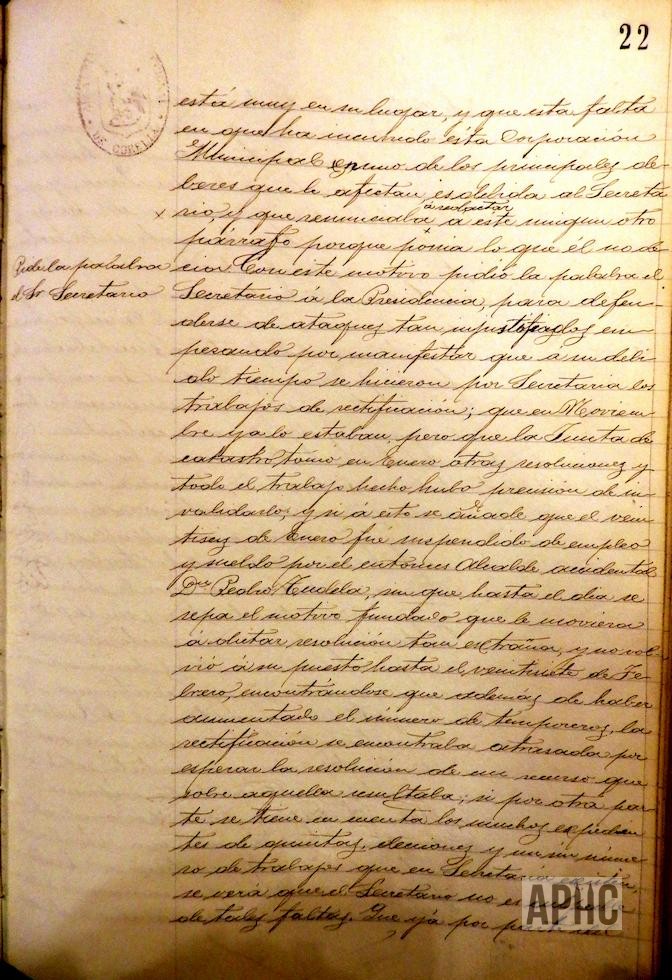 22
DE CORELLA
está muy en su lugar, y que esta falta
en que ha incurrido esta Corporación
Municipal en uno de los principales de
beres que le afectan es debida al Secreta
á redactar
rio, y que renunciaba a este ningun otro
párrafo porque ponia lo que él no de
Pide la palabra
el Sr Secretario
cia. Con este motivo pidió la palabra el
Secretario á la Presidencia, para defen
derse de ataques tan injustificados em
pesando por manifestar que a su debi
do tiempo se hicieron por Secretaria los
trabajos de rectificación; que en Noviem
bre ya lo estaban, pero que la Junta de
catastro, tomó en Enero otras resoluciones y
todo el trabajo hecho hubo precisión de in
validarlo; y si á esto se añade que el vein
tiseis de Enero fué suspendido de empleo
y sueldo por el entonces Alcalde accidental
Dn Pedro Tudela, sin que hasta el dia se
sepa el motivo fundado que le moviera
á dictar resolución tan extraña, y no vol
vió á su puesto hasta el veintisiete de Fe
brero, encontrándose que además de haber
aumentado el número de temporeros, la
rectificación se encontraba atrasada por
esperar la resolución de un recurso que
sobre aquella resultaba; si por otra par
te se tiene en cuenta los muchos expedien
tes de quintas, elecciones y un sin núme
ro de trabajos que en Secretaria
se verá que el Secretario no es
de tales faltas. Que, ya por
APHC